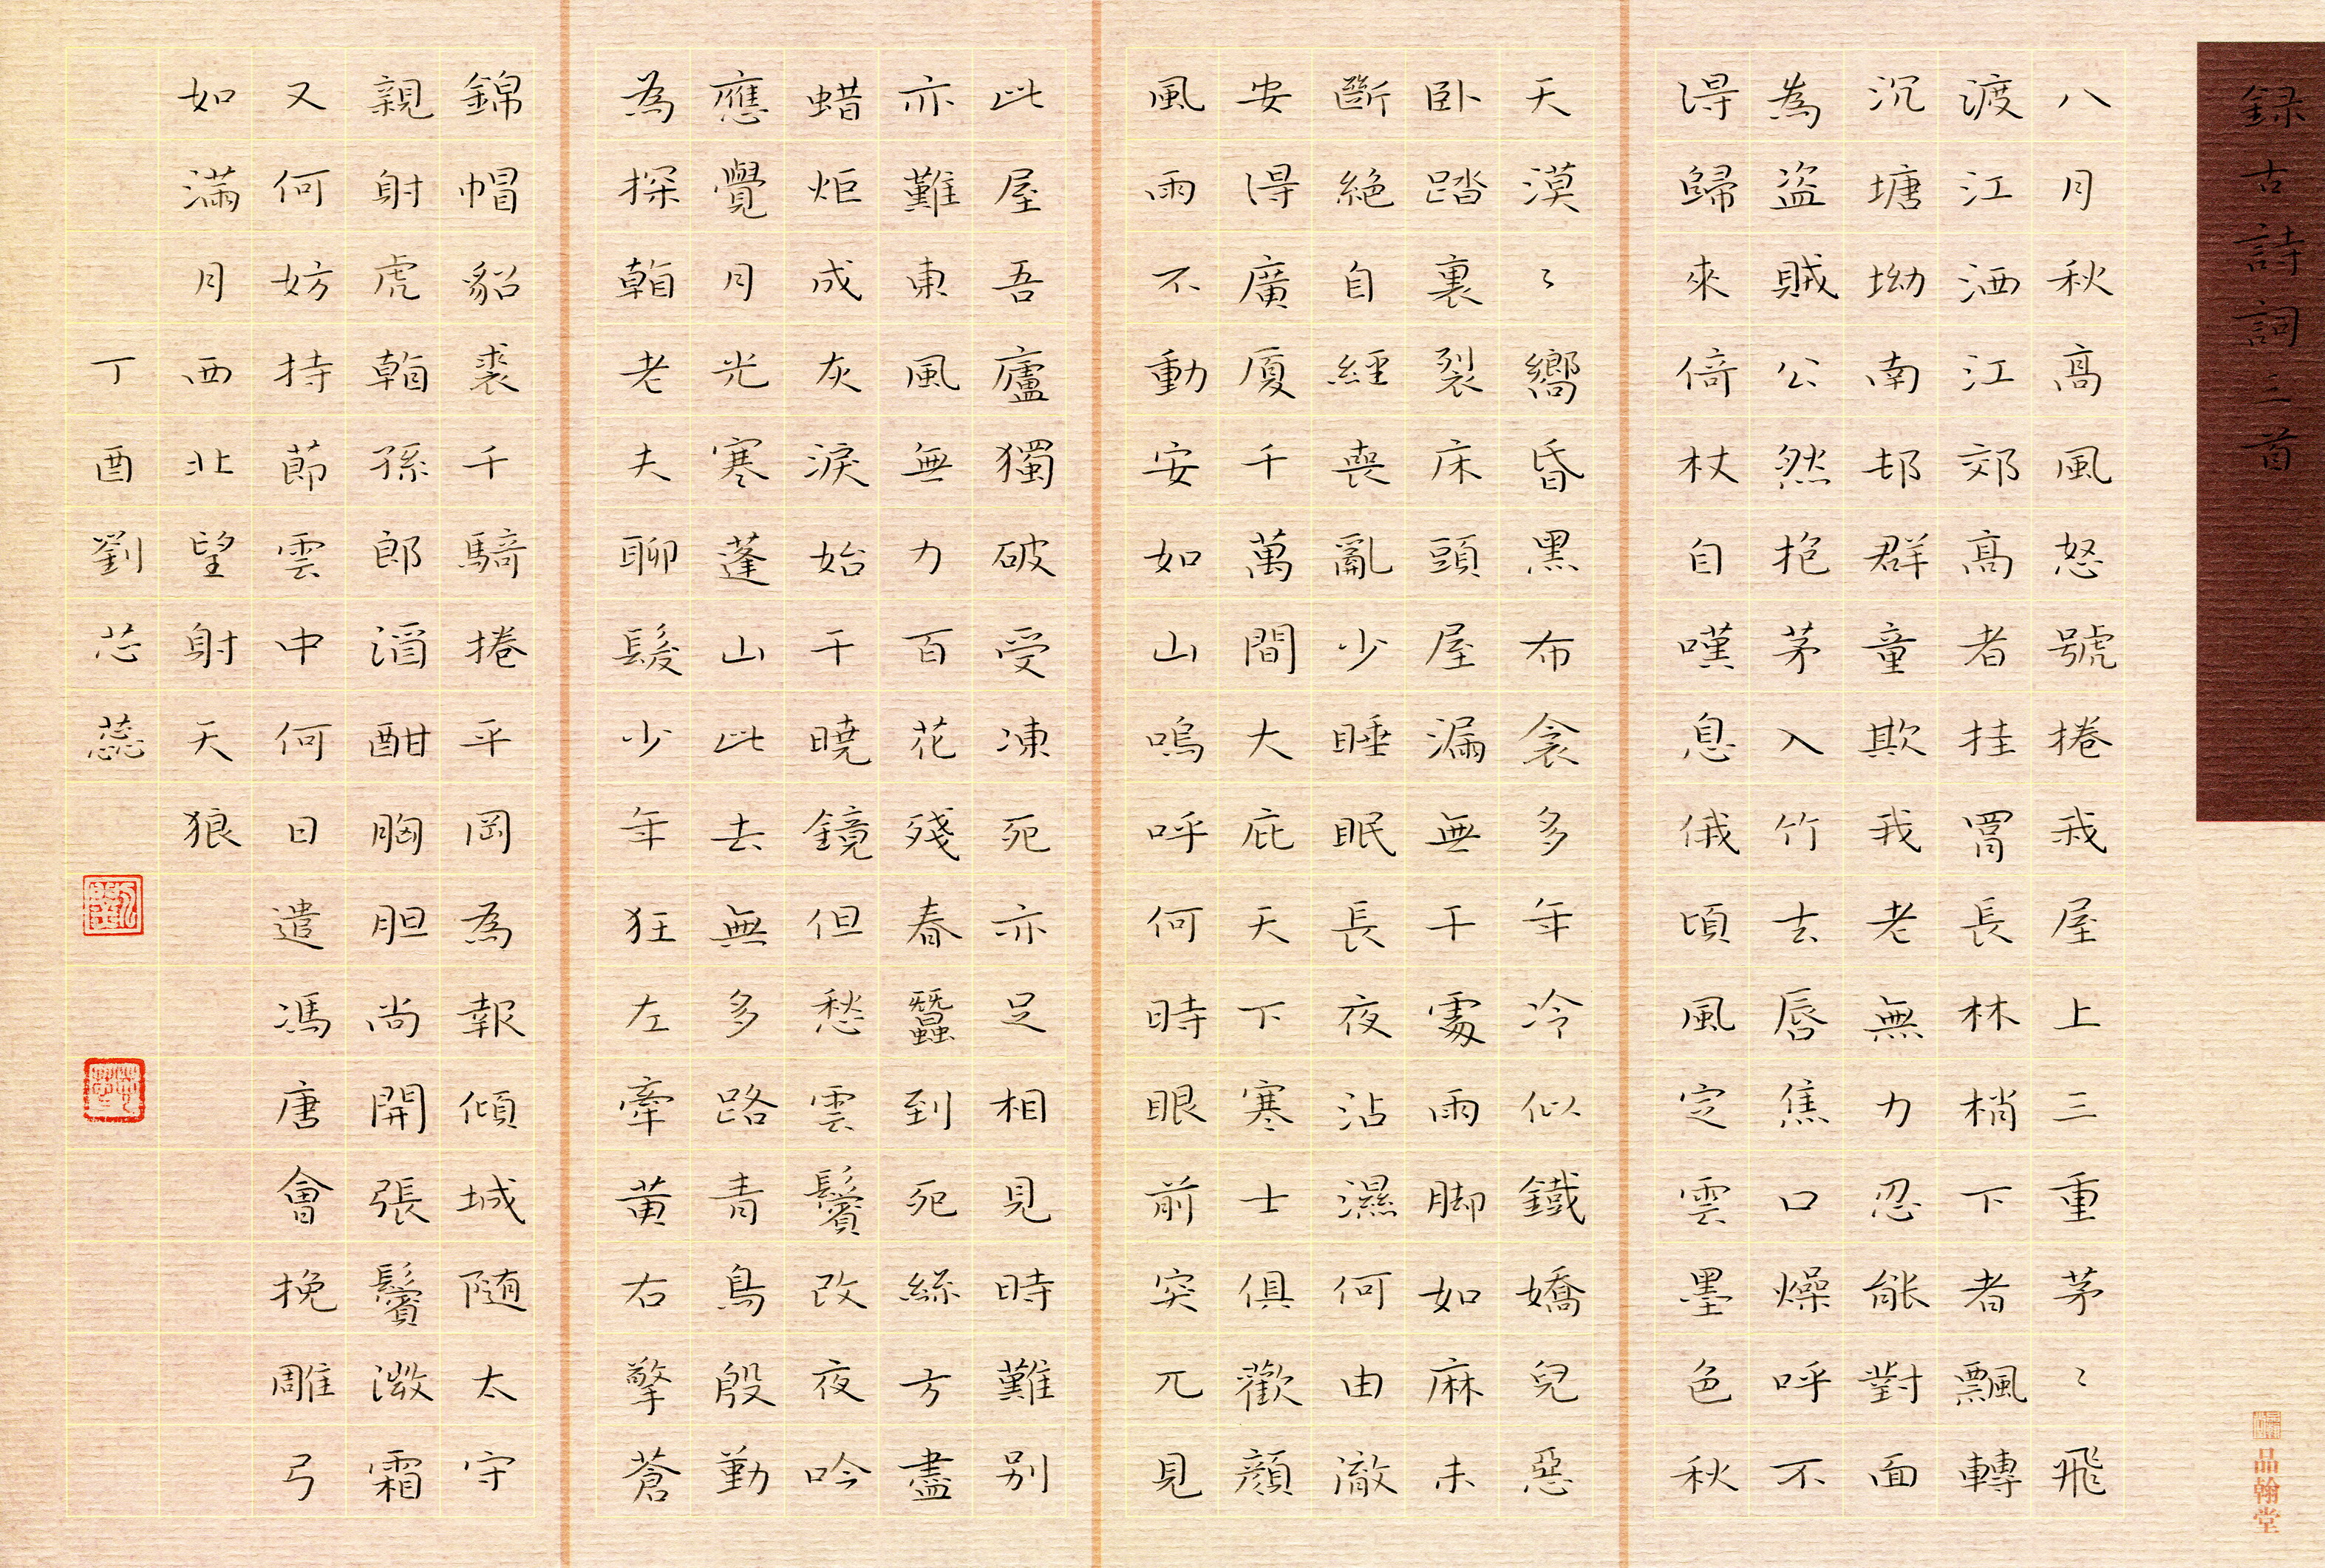 録古詩詞三首
八月秋高風怒號捲我屋上三重茅〻飛
渡江洒江郊高者挂罥長林梢下者飄轉
沉塘坳南邨群童欺我老無力忍能對面
為盜賊公然抱茅入竹去唇焦口燥呼不
得歸來倚杖自嘆息俄頃風定雲墨色秋
天漠〻嚮昏黑布衾多年冷似鐵嬌兒惡
卧踏裏裂床頭屋漏無干處雨脚如麻未
斷絕自經喪亂少睡眠長夜沾濕何由徹
安得廣廈千萬間大庇天下寒士俱歡顏
風雨不動安如山嗚呼何時眼前突兀見
此屋吾廬獨破受凍死亦足相見時難別
亦難東風無力百花殘春蠶到死絲方盡
蜡炬成灰淚始干曉鏡但愁雲鬢改夜吟
應覺月光寒蓬山此去無多路青鳥殷勤
為探看老夫聊髮少年狂左牽黃右擎蒼
錦帽貂裘千騎捲平岡為報傾城隨太守
親射虎看孫郎酒酣胸胆尚開張鬢微霜
又何妨持節雲中何日遣馮唐會挽雕弓
如滿月西北望射天狼
丁酉劉芯蕊
品翰堂